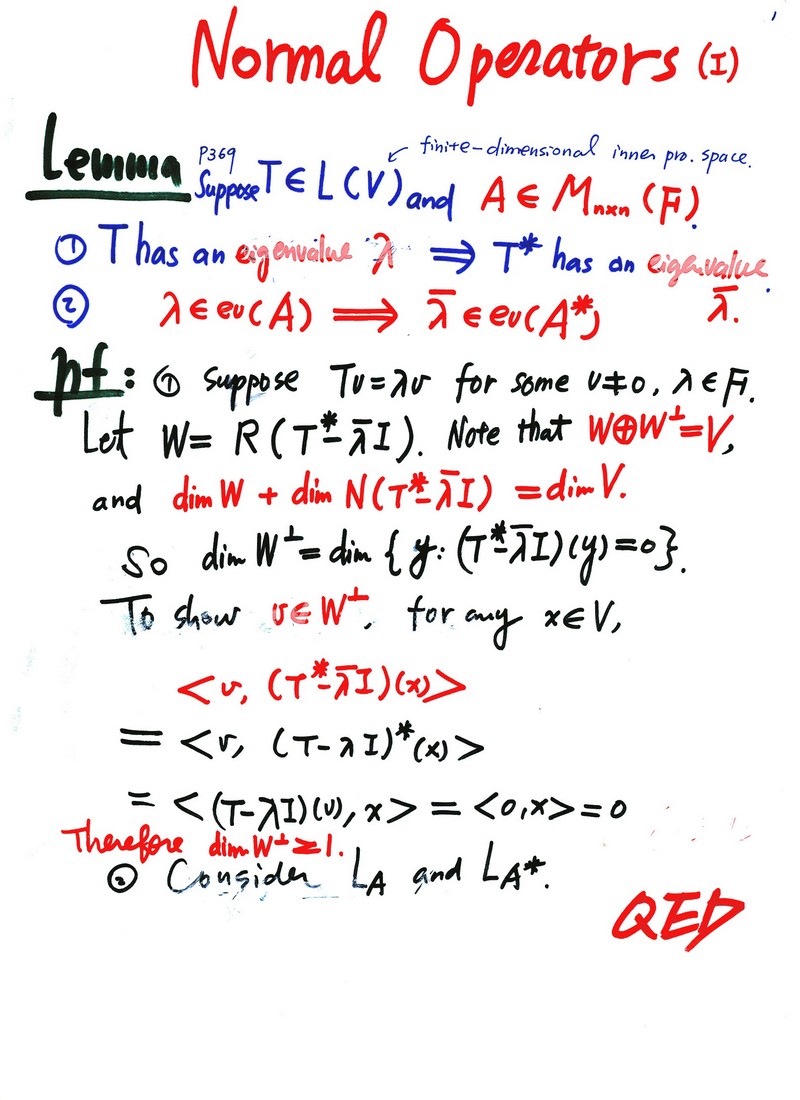 1
Normal Operators (I)
Lemma P369 Suppose T ∈ L(V) and A ∈ M_{n×n}(F).
finite-dimensional inner pro. space.
① T has an eigenvalue λ ⟹ T* has an eigenvalue λ̄.
② λ ∈ ev(A) ⟹ λ̄ ∈ ev(A*)
pf: ① Suppose Tv = λv for some v ≠ 0, λ ∈ F.
Let W = R(T* - λ̄I). Note that W⊕W^⊥ = V,
and dim W + dim N(T* - λ̄I) = dim V.
So dim W^⊥ = dim { y : (T* - λ̄I)(y) = 0 }.
To show v ∈ W^⊥, for any x ∈ V,
<v, (T* - λ̄I)(x)>
= <v, (T - λI)*(x)>
= <(T - λI)(v), x> = <0, x> = 0
Therefore dim W^⊥ ≥ 1.
② Consider L_A and L_{A*}.
QED